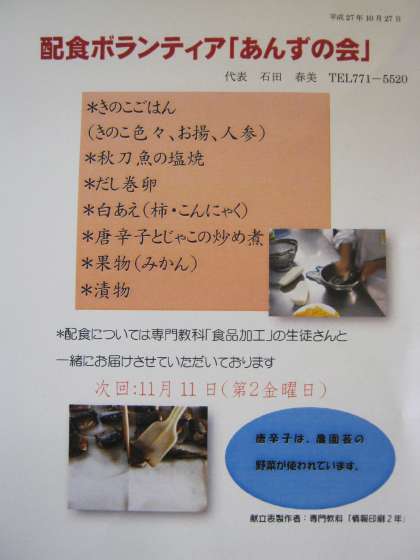 平成27年10月27日
配食ボランティア「あんずの会」
代表 石田 春美 TEL771-5520
*きのこごはん
(きのこ色々、お揚、人参)
*秋刀魚の塩焼
*だし巻卵
*白あえ(柿・こんにゃく)
*唐辛子とじゃこの炒め煮
*果物(みかん)
*漬物
*配食については専門教科「食品加工」の生徒さんと
一緒にお届けさせていただいております
次回:11月11日(第2金曜日)
唐辛子は、農園芸の
野菜が使われています。
献立表製作者:専門教科「情報印刷2年」